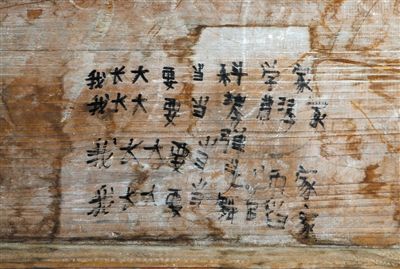 我长大要当科学家
我长大要当 家
我长大要当 家
我长大要当舞蹈家